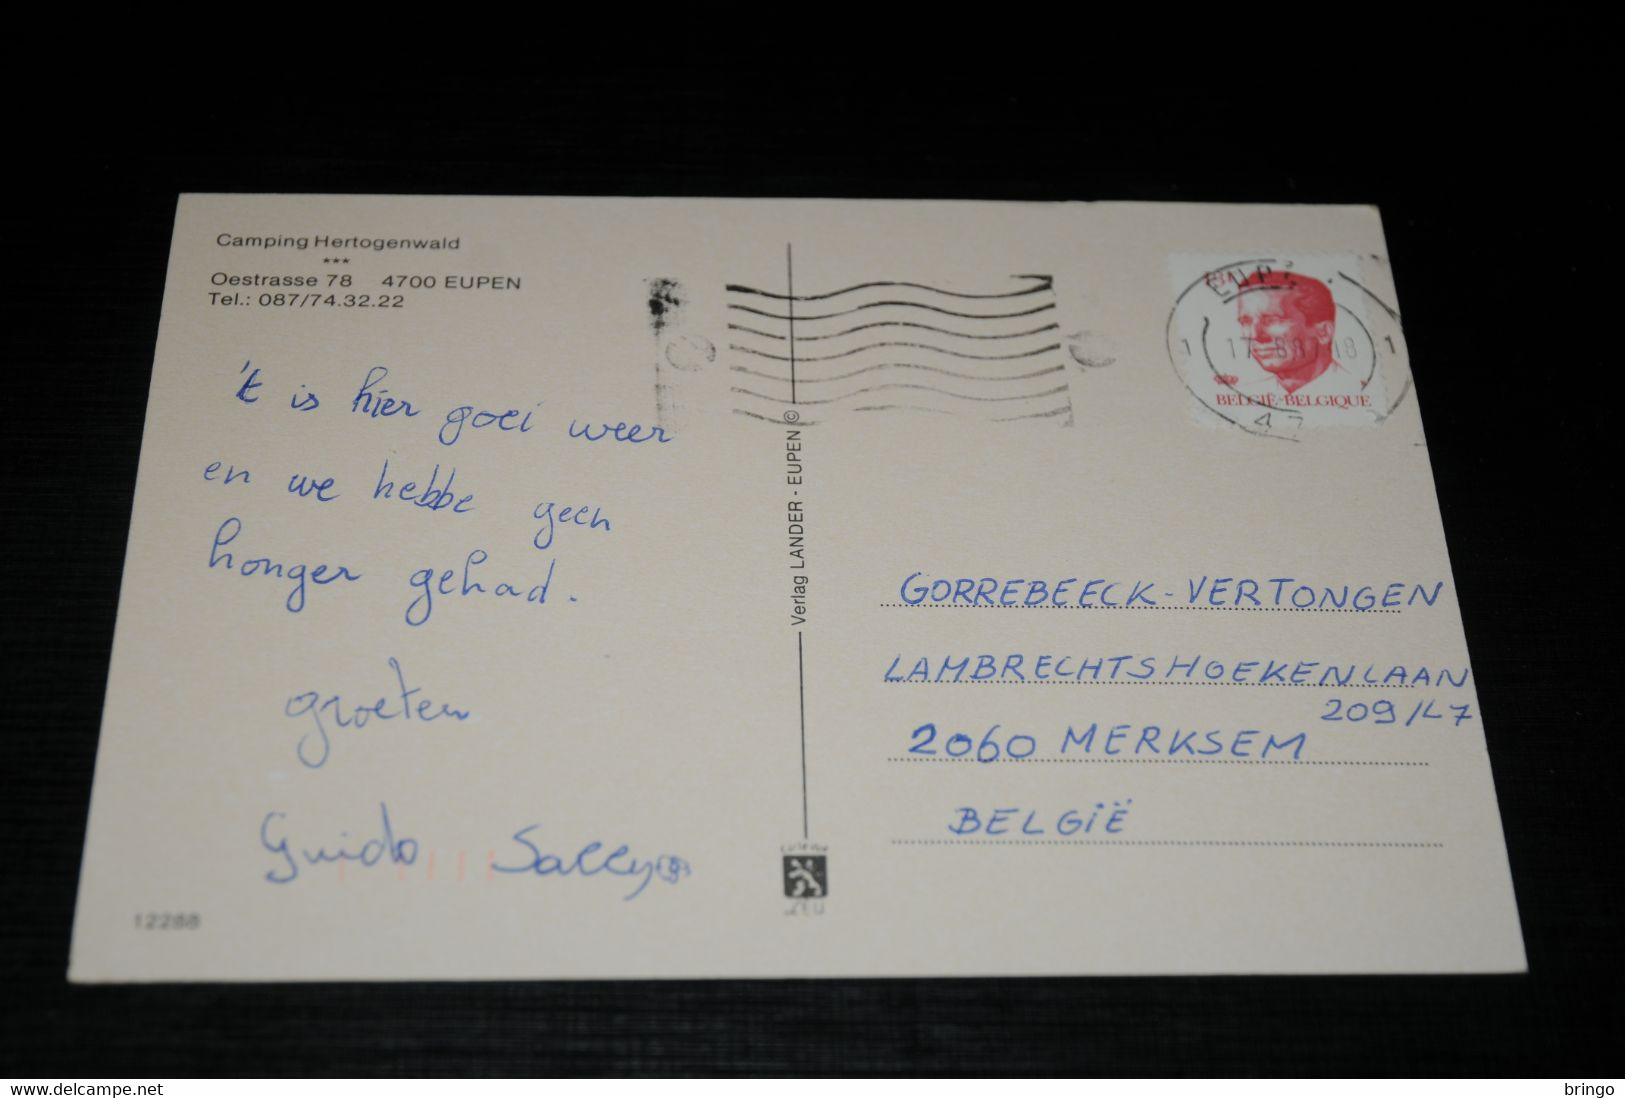 Camping Hertogenwald
***
Oestrasse 78 4700 EUPEN
Tel.: 087/74.32.22
't is hier goei weer
en we hebbe geen
honger gehad.
groeten
Guido Sally
12288
Verlag LANDER - EUPEN ©
BELGIË-BELGIQUE
1 17 - 8 18 1
GORREBEECK-VERTONGEN
LAMBRECHTSHOEKENLAAN
209/L7
2060 MERKSEM
BELGIË
www.delcampe.net
bringo